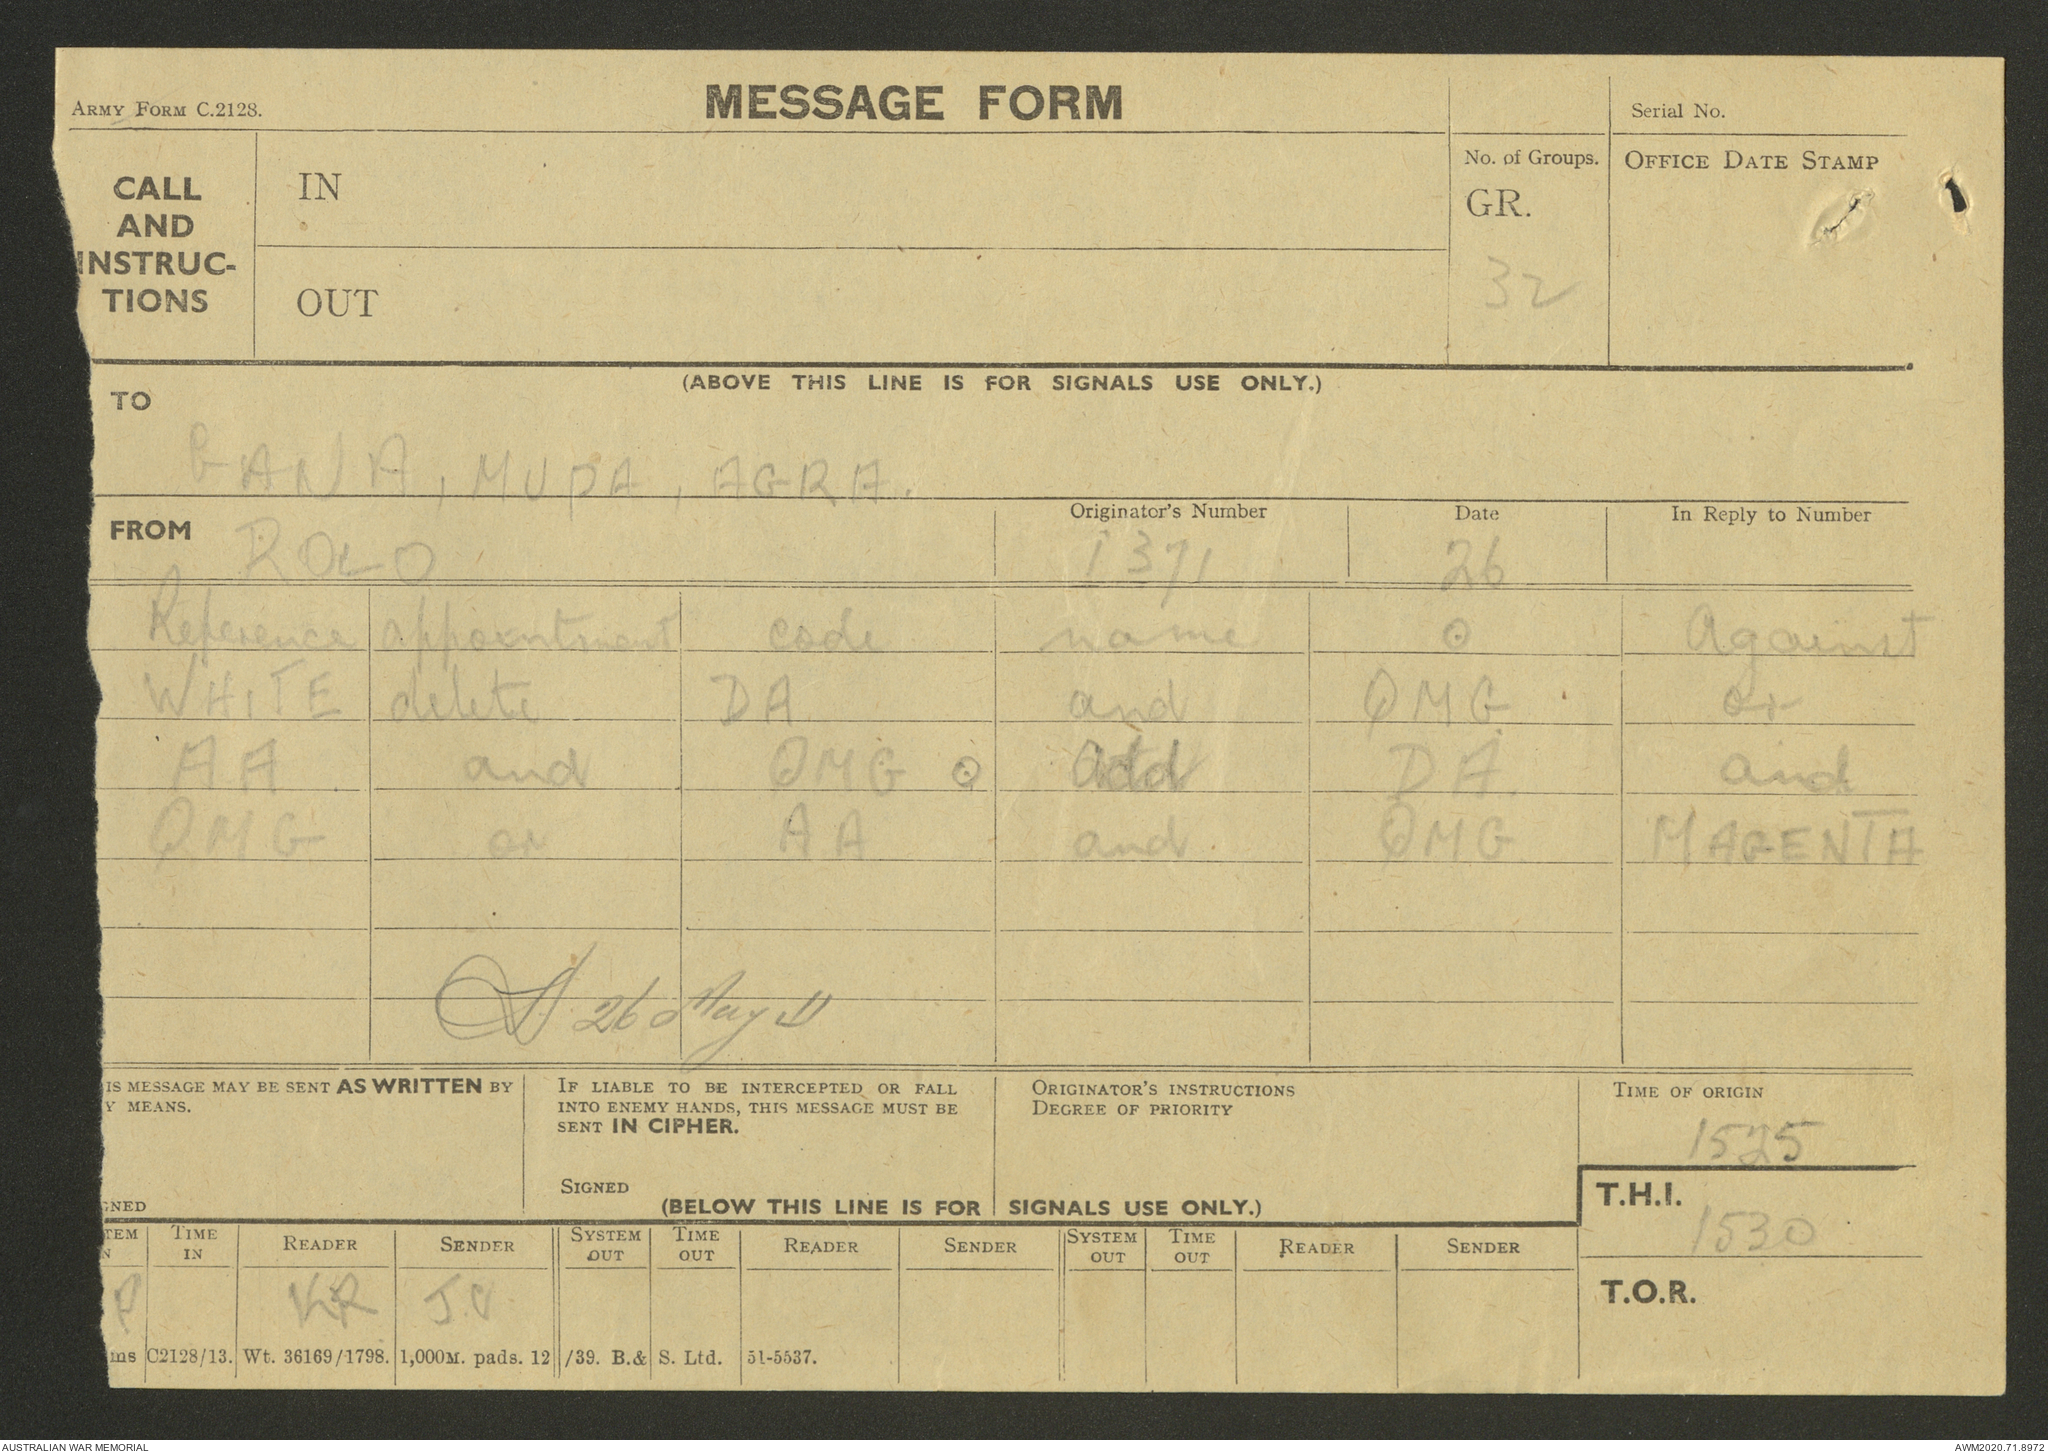 ARMY FORM C.2128.
MESSAGE FORM
Serial No.
CALL
AND
INSTRUC-
TIONS
IN
OUT
No. of Groups.
GR.
32
OFFICE DATE STAMP
(ABOVE THIS LINE IS FOR SIGNALS USE ONLY.)
TO
MUDA, AGRA.
FROM
ROLO
Originator's Number
1371
Date
26
In Reply to Number
Reference appointment code name o Against
WHITE delete DA and QMG or
AA and QMG o Add DA and
QMG or AA and QMG MAGENTA
26 May
IS MESSAGE MAY BE SENT AS WRITTEN BY
Y MEANS.
GNED
IF LIABLE TO BE INTERCEPTED OR FALL
INTO ENEMY HANDS, THIS MESSAGE MUST BE
SENT IN CIPHER.
SIGNED
ORIGINATOR'S INSTRUCTIONS
DEGREE OF PRIORITY
TIME OF ORIGIN
1525
(BELOW THIS LINE IS FOR SIGNALS USE ONLY.)
T.H.I.
1530
T.O.R.
TEM
N
TIME
IN
READER
SENDER
SYSTEM
OUT
TIME
OUT
READER
SENDER
SYSTEM
OUT
TIME
OUT
READER
SENDER
P KR
ms C2128/13. Wt. 36169/1798. 1,000M. pads. 12/39. B.& S. Ltd. 51-5537.
AUSTRALIAN WAR MEMORIAL
AWM2020.71.8972